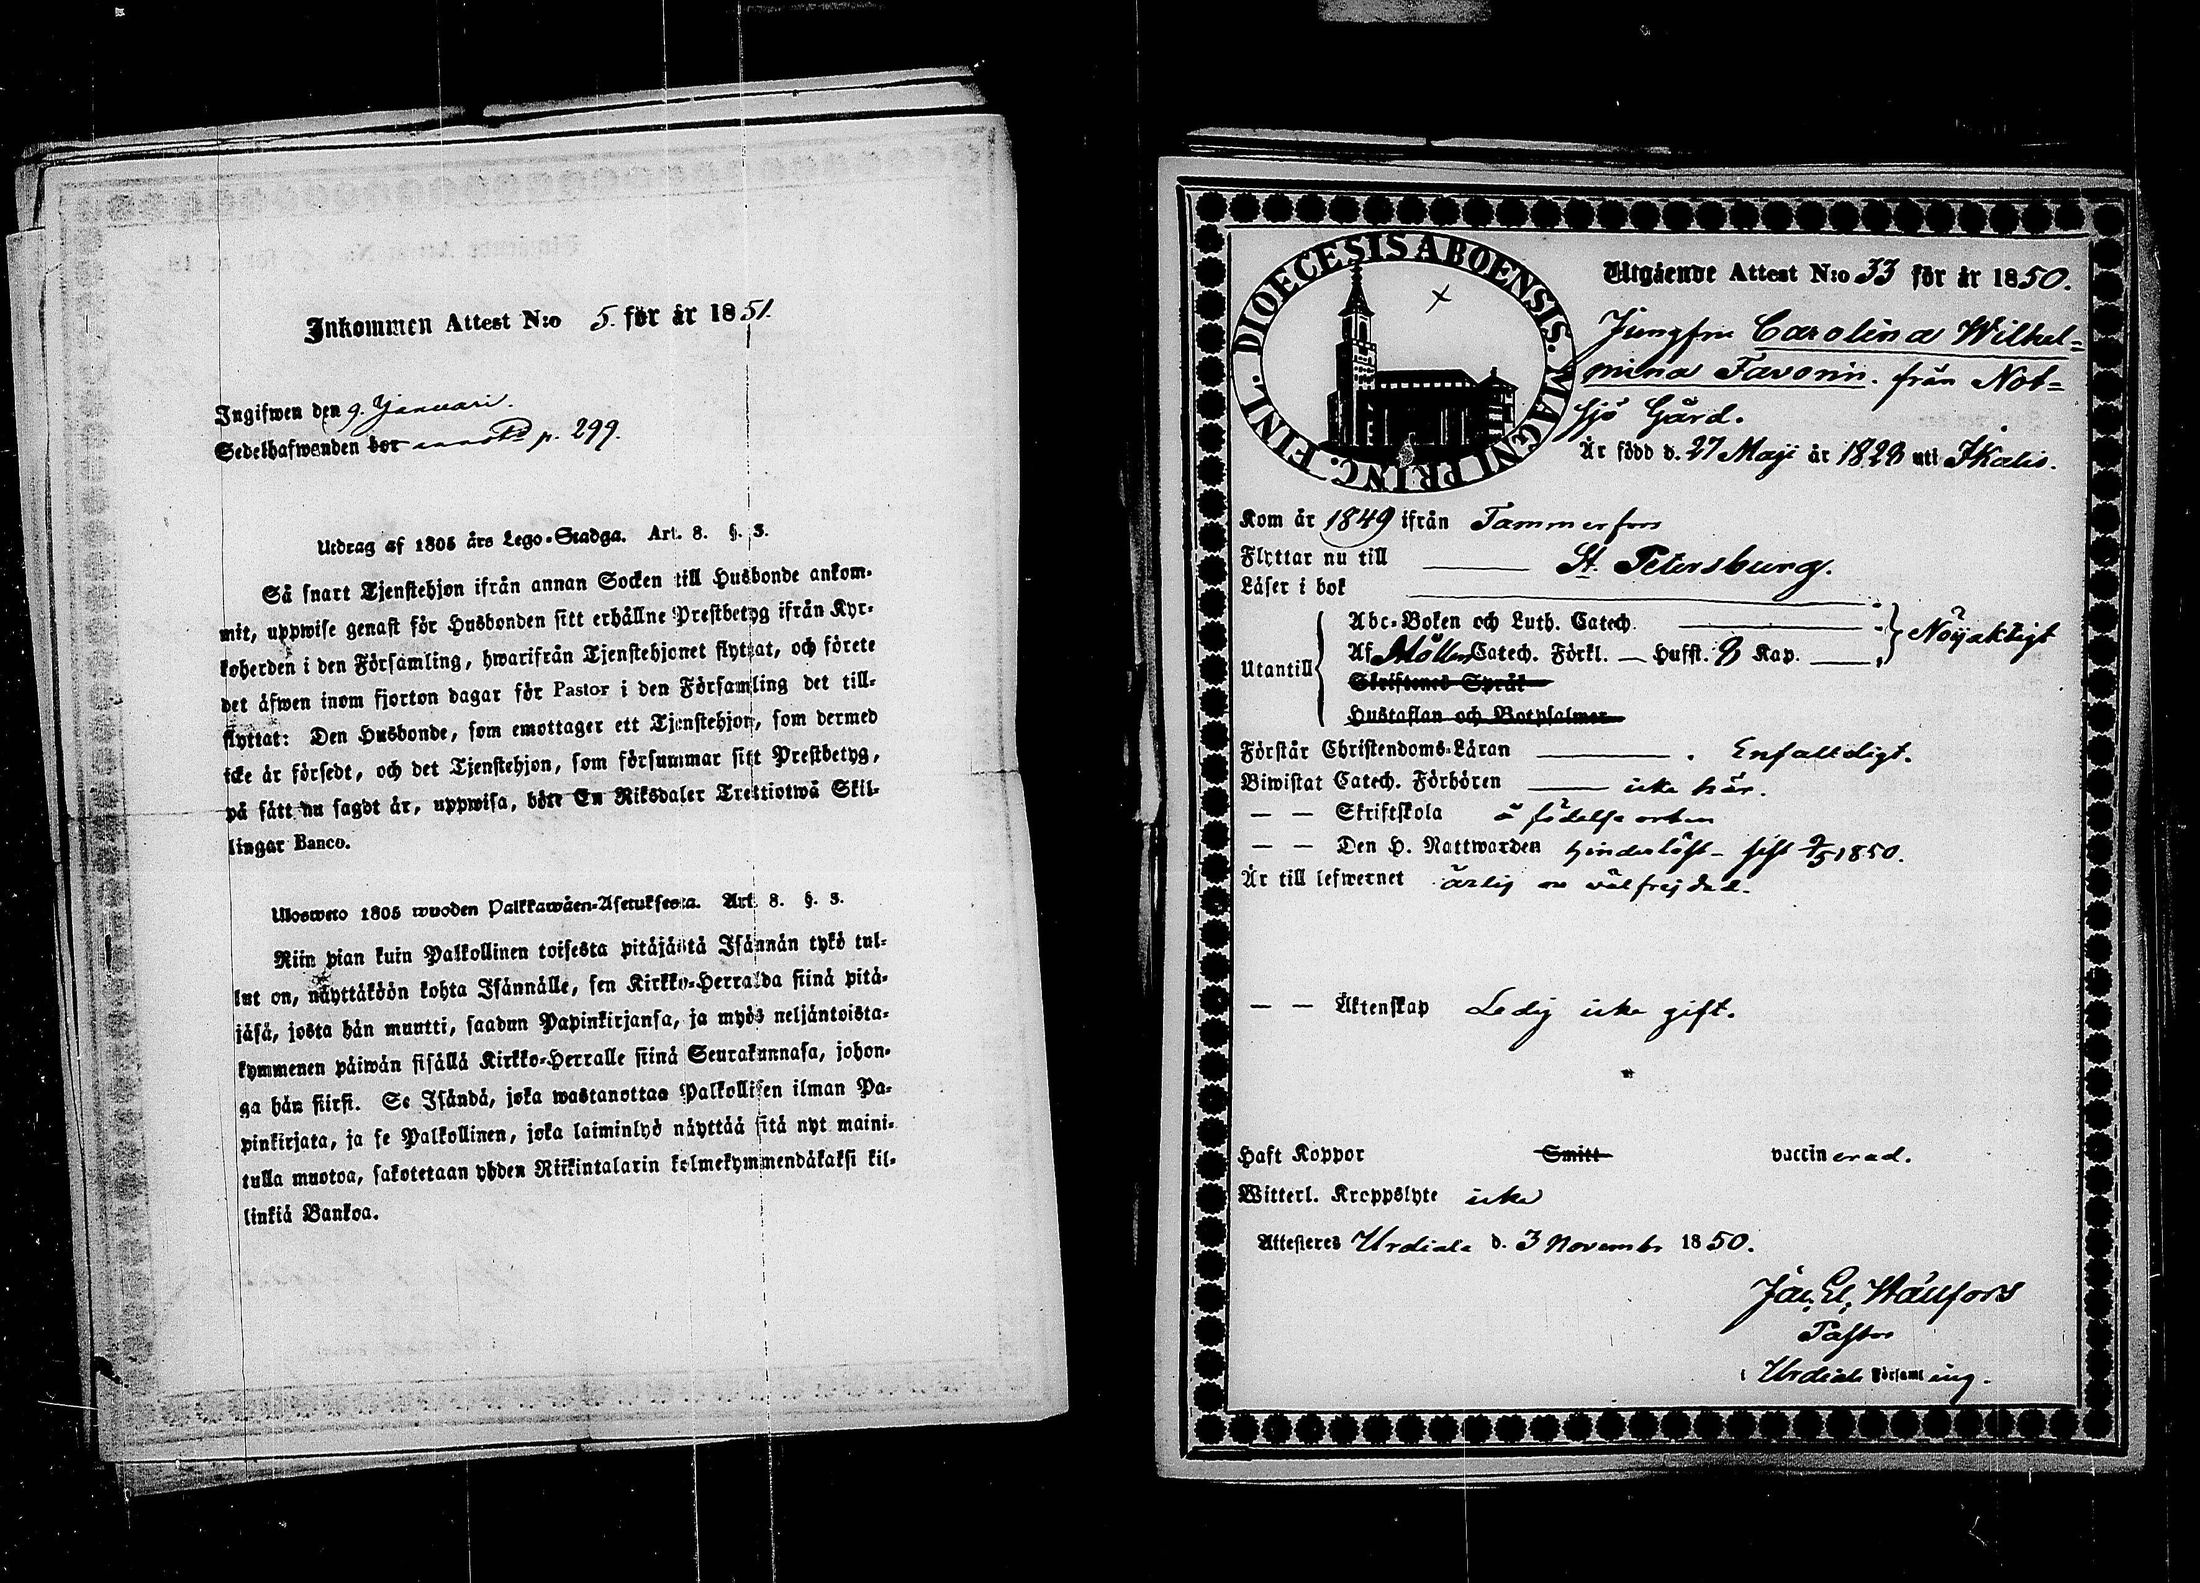 Inkommen Attest N:o 5. för år 1851.
Ingifwen den 9. Januari.
Sedelhafwanden bor p. 299.
Utdrag af 1805 års Lego-Stadga. Art. 8. §. 3.
Så snart Tjenstehjon ifrån annan Socken till Husbonde ankom-
mit, uppwise genast för Husbonden sitt erhållne Prestbetyg ifrån Kyr-
koherden i den Församling, hwarifrån Tjenstehjonet flyttat, och förete
det äfwen inom fjorton dagar för Pastor i den Församling det till-
flyttat: Den Husbonde, som emottager ett Tjenstehjon, som dermed
icke är försedt, och det Tjenstehjon, som försummar sitt Prestbetyg,
på sätt nu sagdt är, uppwisa, böte En Riksdaler Trettiotwå Skil-
lingar Banco.
Ulosweto 1805 wuoden Palkkawäen-Asetuksesta. Art. 8. §. 3.
Niin pian kuin Palkollinen toisesta pitäjästä Isännän tykö tul-
lut on, näyttäköön kohta Isännälle, sen Kirkko-Herralda siinä pitä-
jäsä, josta hän muutti, saadun Papinkirjansa, ja myös neljäntoista-
kymmenen päiwän sisällä Kirkko-Herralle siinä Seurakunnasa, johon-
ga hän siirsi. Se Isändä, joka wastanottaa Palkollisen ilman Pa-
pinkirjata, ja se Palkollinen, joka laiminlyö näyttää sitä nyt maini-
tulla muotoa, sakotetaan yhden Riikintalarin kolmekymmendäkaksi kil-
linkiä Bankoa.
FINL. DIOECESIS ABOENSIS. MAGNI PRINC.
Utgående Attest N:o 33 för år 1850.
Jungfru Carolina Wilhel=
mina Favorin. från Not=
sjö Gård.
Är född d. 27 Maji år 1828 uti Ikalis.
Kom år 1849 ifrån Tammerfors
Flyttar nu till St. Petersburg.
Läser i bok
Abc-Boken och Luth. Catech.
Utantill Af Möllers Catech. Förkl. — Husst. 8 Kap. Nöjaktigt
Skriftenes Språk
Hustaflan och Botpsalmer
Förstår Christendoms-Läran . Enfaldigt.
Biwistat Catech. Förhören icke här.
— — Skriftskola å födelse orten
— — Den H. Nattwarden hinderlöst - sist 9/5 1850.
Är till lefwernet ärlig och välfrejdad.
— — Äktenskap Ledig icke gift.
Haft Koppor Smitt vaccinerad.
Witterl. Kroppslyte icke
Attesteras Urdiala d. 3 Novembr 1850.
Jac. El. Hällfors
Pastor
i Urdiala Församling.